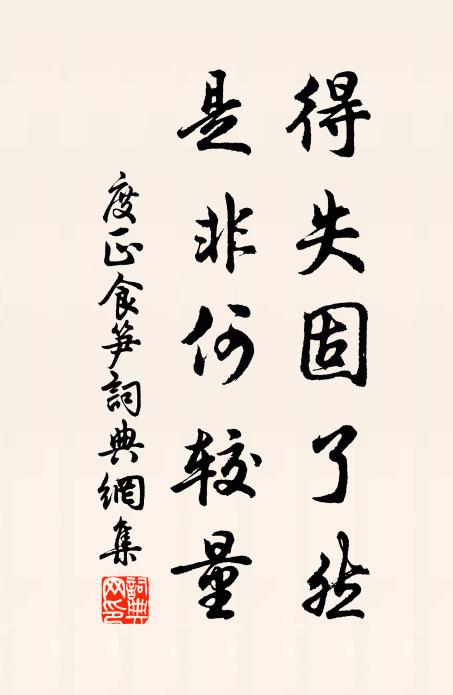 得失固了然
是非何较量
度正食笋詞典網集
詞典网印